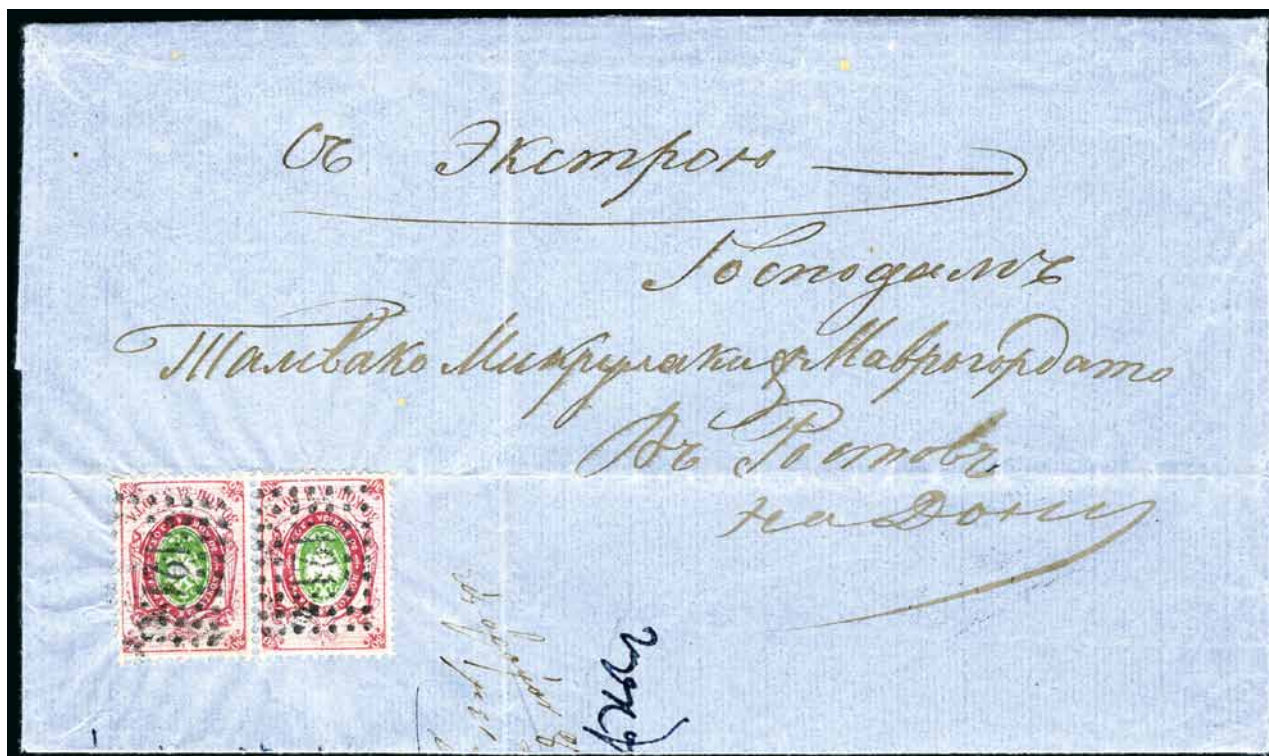 Съ Экстрою
Господамъ
Тамвако Микрулаки & Маврогордато
Въ Ростовъ
на Дону